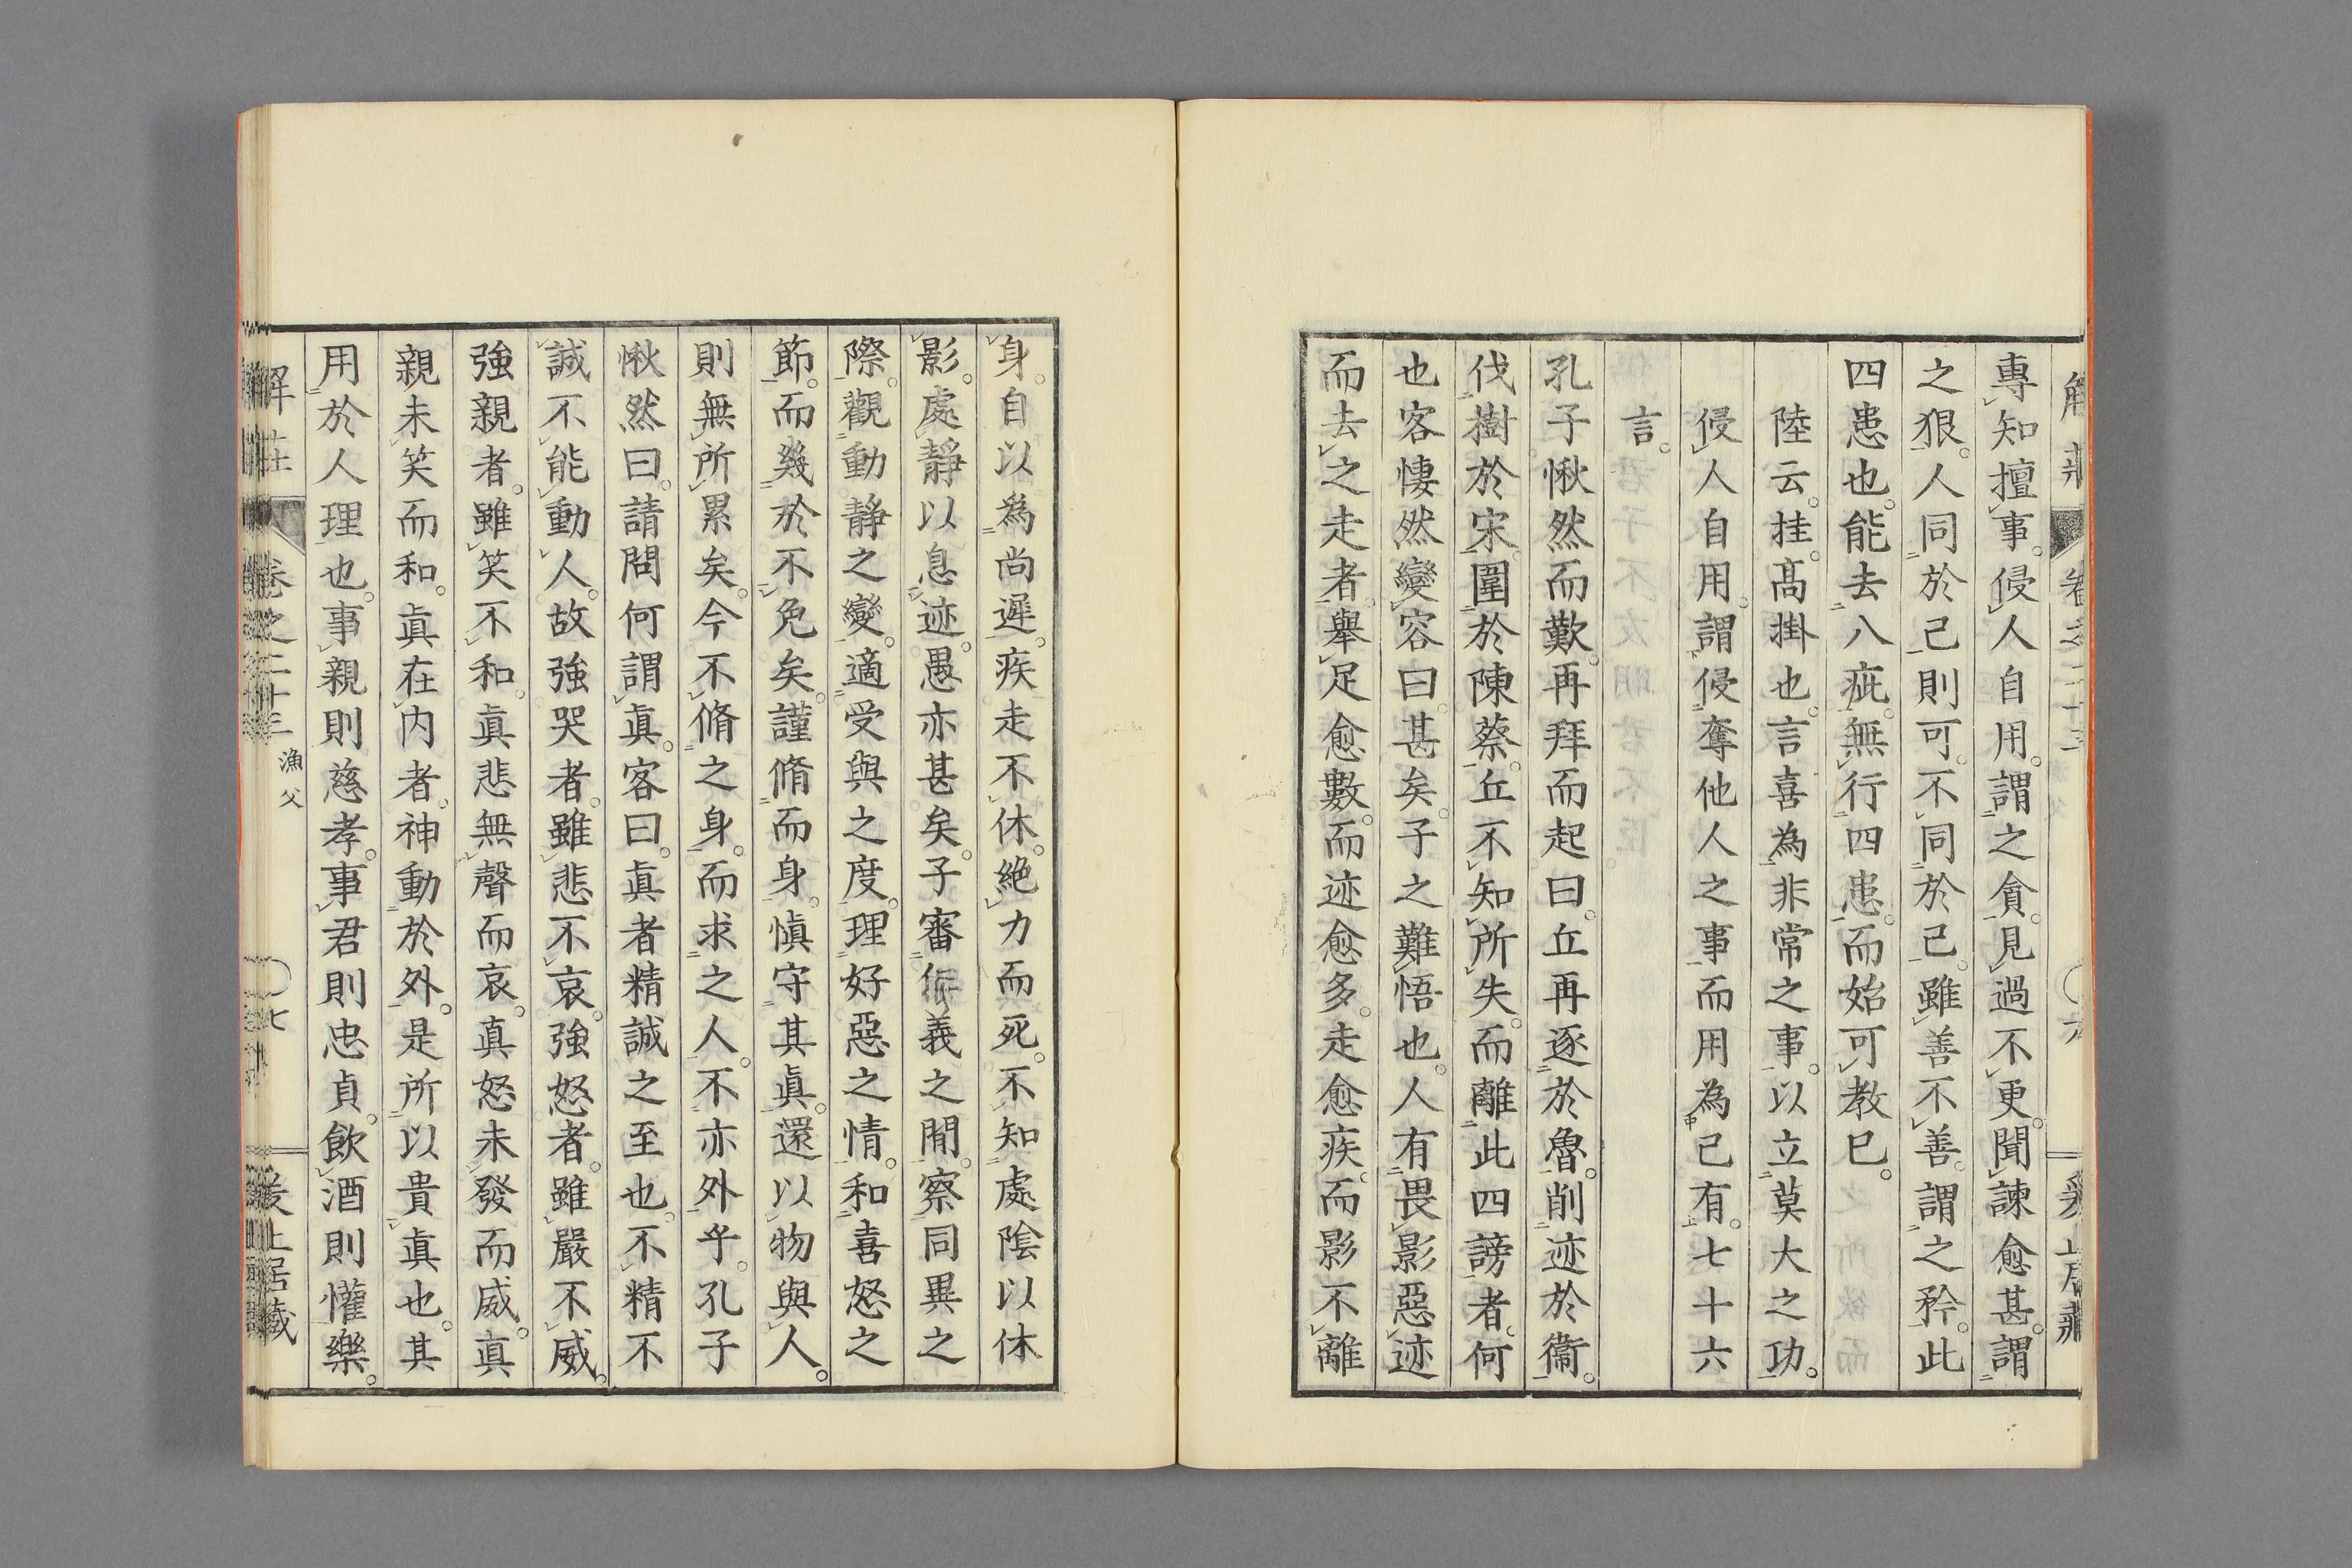 專知擅事。侵人自用。謂之貪。見過不更。聞諫愈甚。謂
之狠。人同於己則可。不同於己。雖善不善。謂之矜。此
四患也。能去八疵。無行四患。而始可教已。
陸云。挂。高掛也。言喜為非常之事。以立莫大之功。
侵人自用。謂侵奪他人之事而用為己有。七十六
言。
孔子愀然而歎。再拜而起曰。丘再逐於魯。削迹於衞。
伐樹於宋。圍於陳蔡。丘不知所失。而離此四謗者。何
也客悽然變容曰。甚矣。子之難悟也。人有畏影惡迹
而去之走者。舉足愈數。而迹愈多。走愈疾。而影不離
身。自以為尚遲。疾走不休。絶力而死。不知處陰以休
影。處靜以息迹。愚亦甚矣。子審仁義之閒。察同異之
際。觀動靜之變。適受與之度。理好惡之情。和喜怒之
節。而幾於不免矣。謹脩而身。慎守其眞。還以物與人。
則無所累矣。今不脩之身。而求之人。不亦外乎。孔子
愀然曰。請問何謂眞。客曰。眞者精誠之至也。不精不
誠不能動人。故強哭者。雖悲不哀。強怒者。雖嚴不威。
強親者。雖笑不和。眞悲無聲而哀。眞怒未發而威。眞
親未笑而和。眞在内者。神動於外。是所以貴眞也。其
用於人理也。事親則慈孝。事君則忠貞。飲酒則懽樂。
解莊
卷之二十三
漁父
七